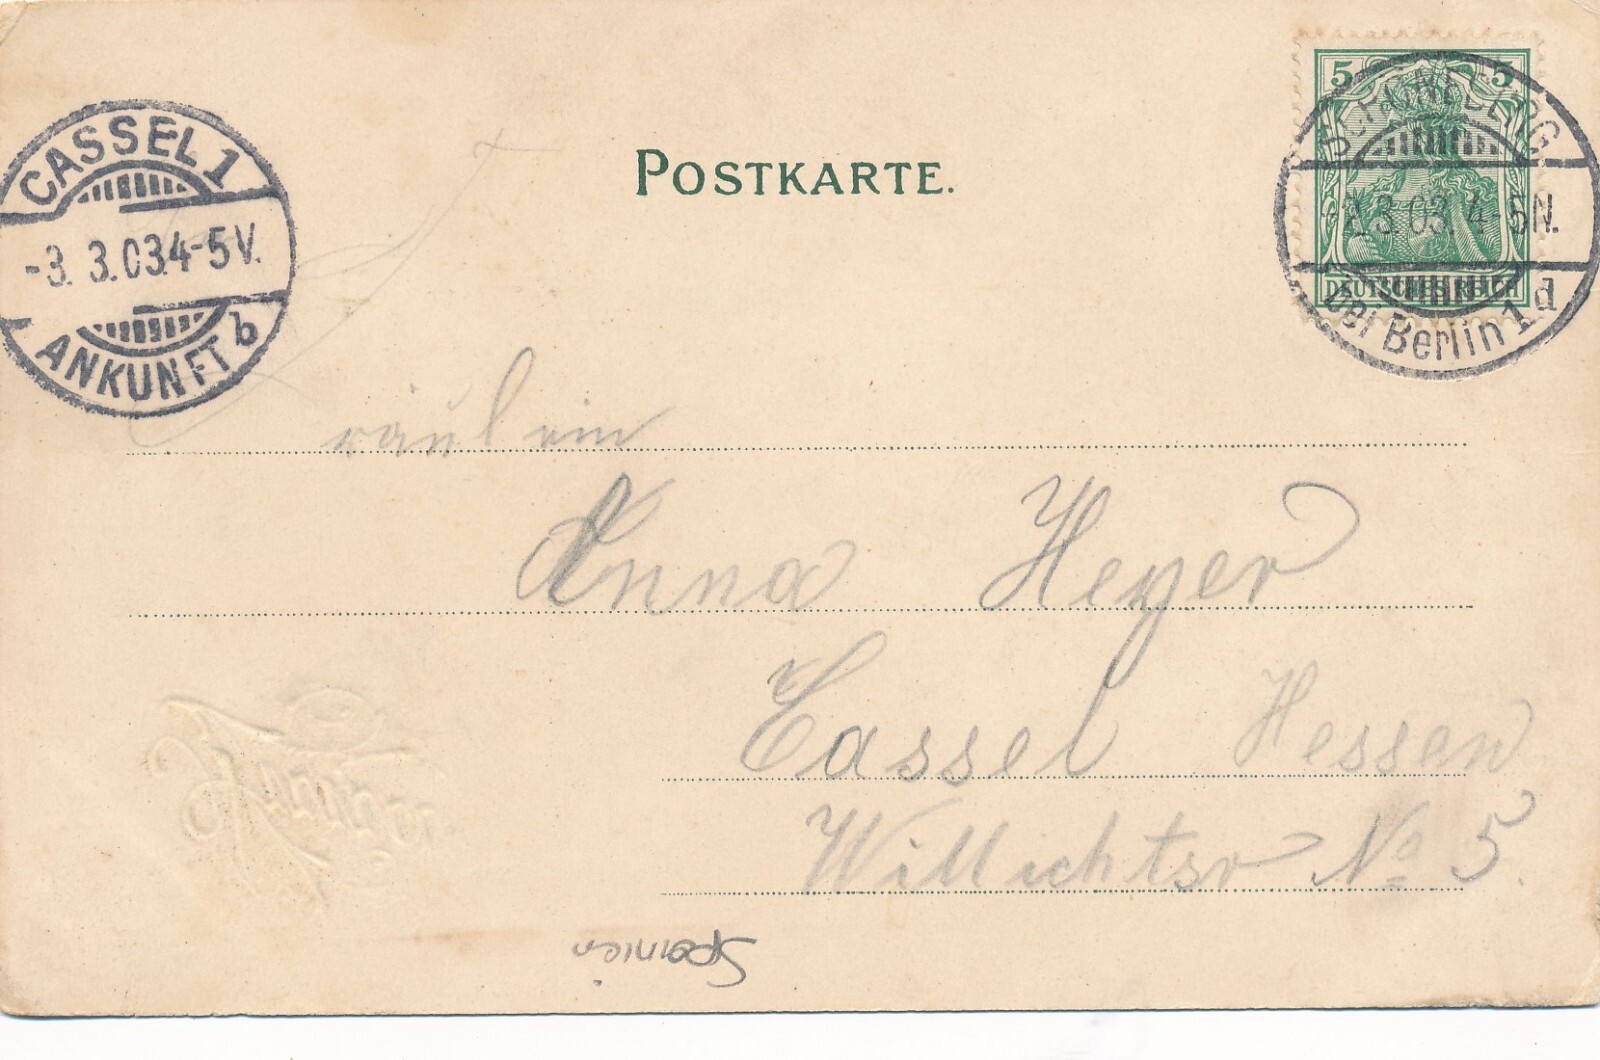 CASSEL 1
-3. 3.03.4-5V.
ANKUNFT b
POSTKARTE.
5 5
DEUTSCHES REICH
SCHÖNEBERG
-2.3.03. 4-5N.
bei Berlin 1 d
Fräulein
Anna Heyer
Cassel Hessen
Willichtsr No 5.
Spanien